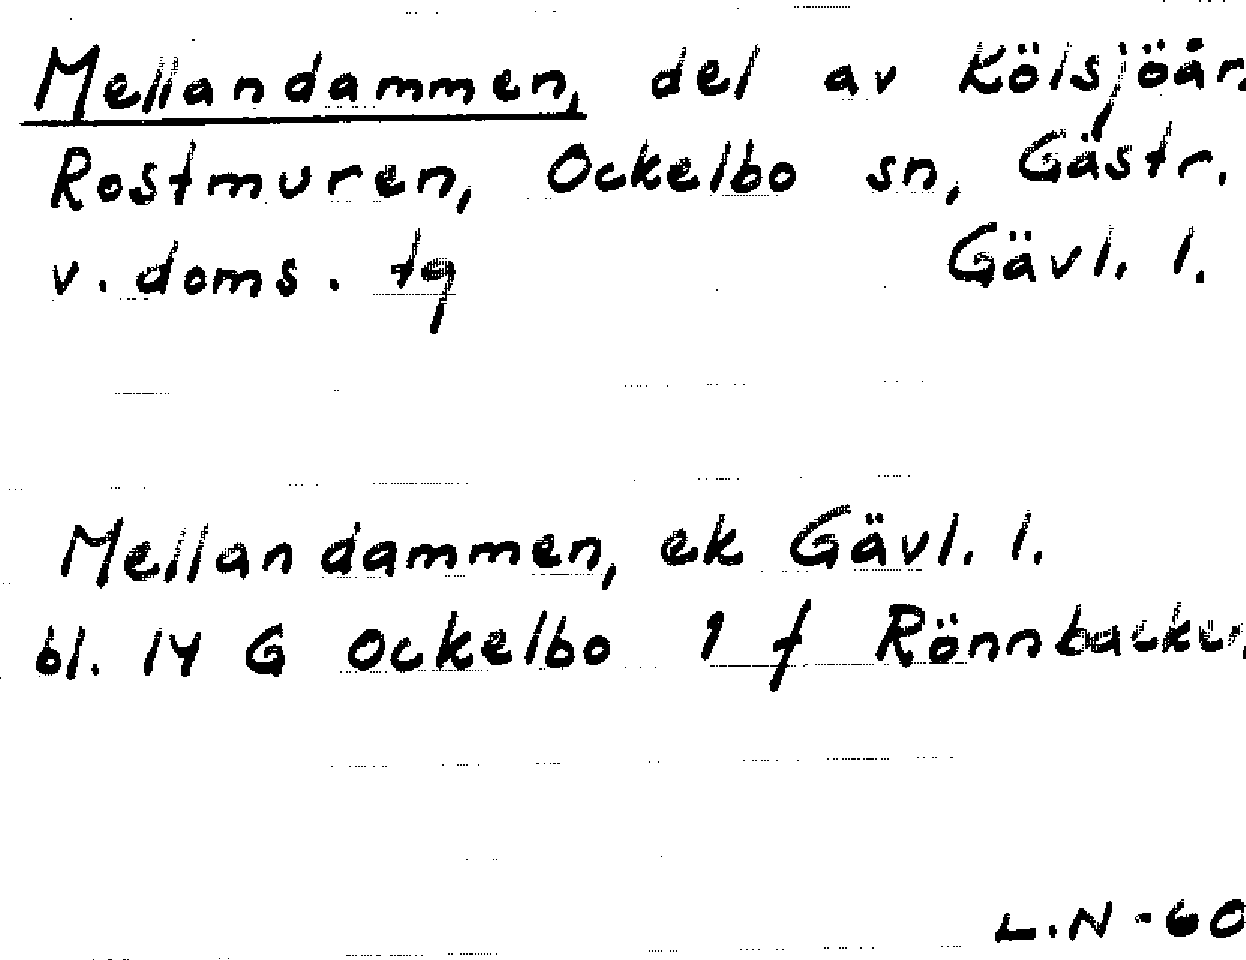 Mellandammen, del av Kölsjöån.
Rostmuren, Ockelbo sn, Gästr.
v. doms. tg Gävl. l.
Mellandammen, ek Gävl. l.
bl. 14 G Ockelbo 1 f Rönnbacken
L.N -60